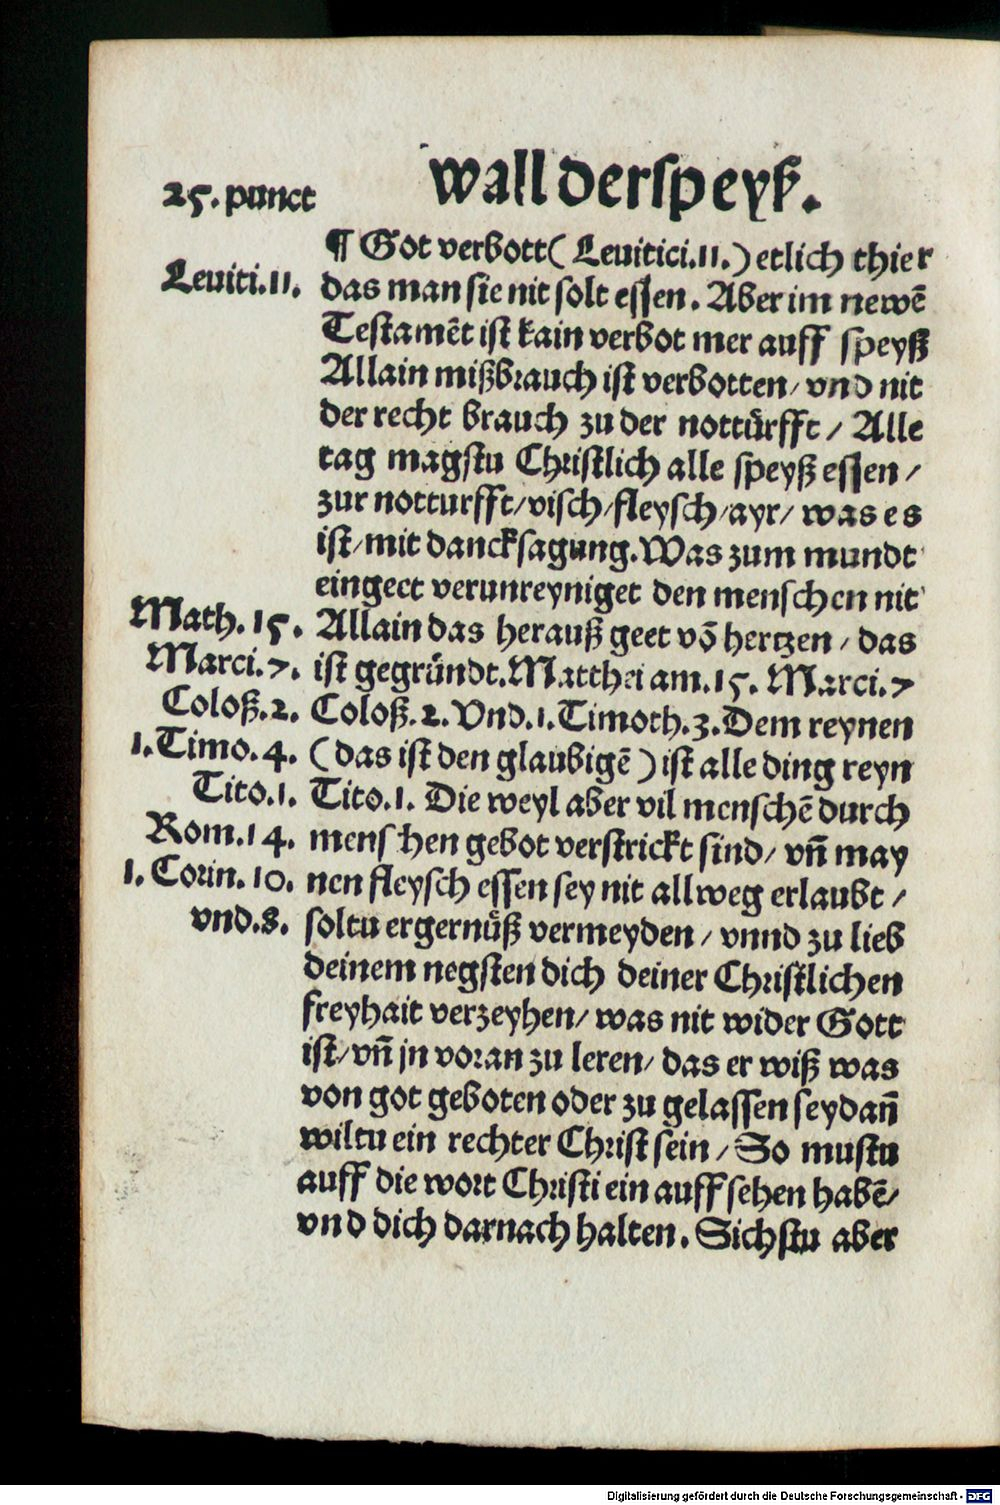 25. punct
wall der speyß.
¶ Got verbott (Leuitici.11.) etlich thier
Leuiti.11.
das man sie nit solt essen. Aber im newē
Testamēt ist kain verbot mer auff speyß
Allain mißbrauch ist verbotten/ vnd nit
der recht brauch zu der nottürfft/ Alle
tag magstu Christlich alle speyß essen/
zur notturfft/visch/fleysch/ayr/ was es
ist/mit dancksagung. Was zum mundt
eingeet verunreyniget den menschen nit
Math. 15.
Allain das herauß geet vō hertzen/ das
Marci.7.
ist gegründt. Matthei am.15. Marci.7
Coloß.2.
Coloß.2. Vnd.1.Timoth.3. Dem reynen
1.Timo.4.
(das ist den glaubigē) ist alle ding reyn
Tito.1.
Tito.1. Die weyl aber vil menschē durch
Rom.14.
mens hen gebot verstrickt sind/ vñ may
1. Corin. 10.
nen fleysch essen sey nit allweg erlaubt/
vnd.8.
soltu ergernüß vermeyden/ vnnd zu lieb
deinem negsten dich deiner Christlichen
freyhait verzeyhen/ was nit wider Gott
ist/vñ jn voran zu leren/ das er wiß was
von got geboten oder zu gelassen sey dañ
wiltu ein rechter Christ sein/ So mustu
auff die wort Christi ein auff sehen habē/
vnd dich darnach halten. Sichstu aber
Digitalisierung gefördert durch die Deutsche Forschungsgemeinschaft - DFG